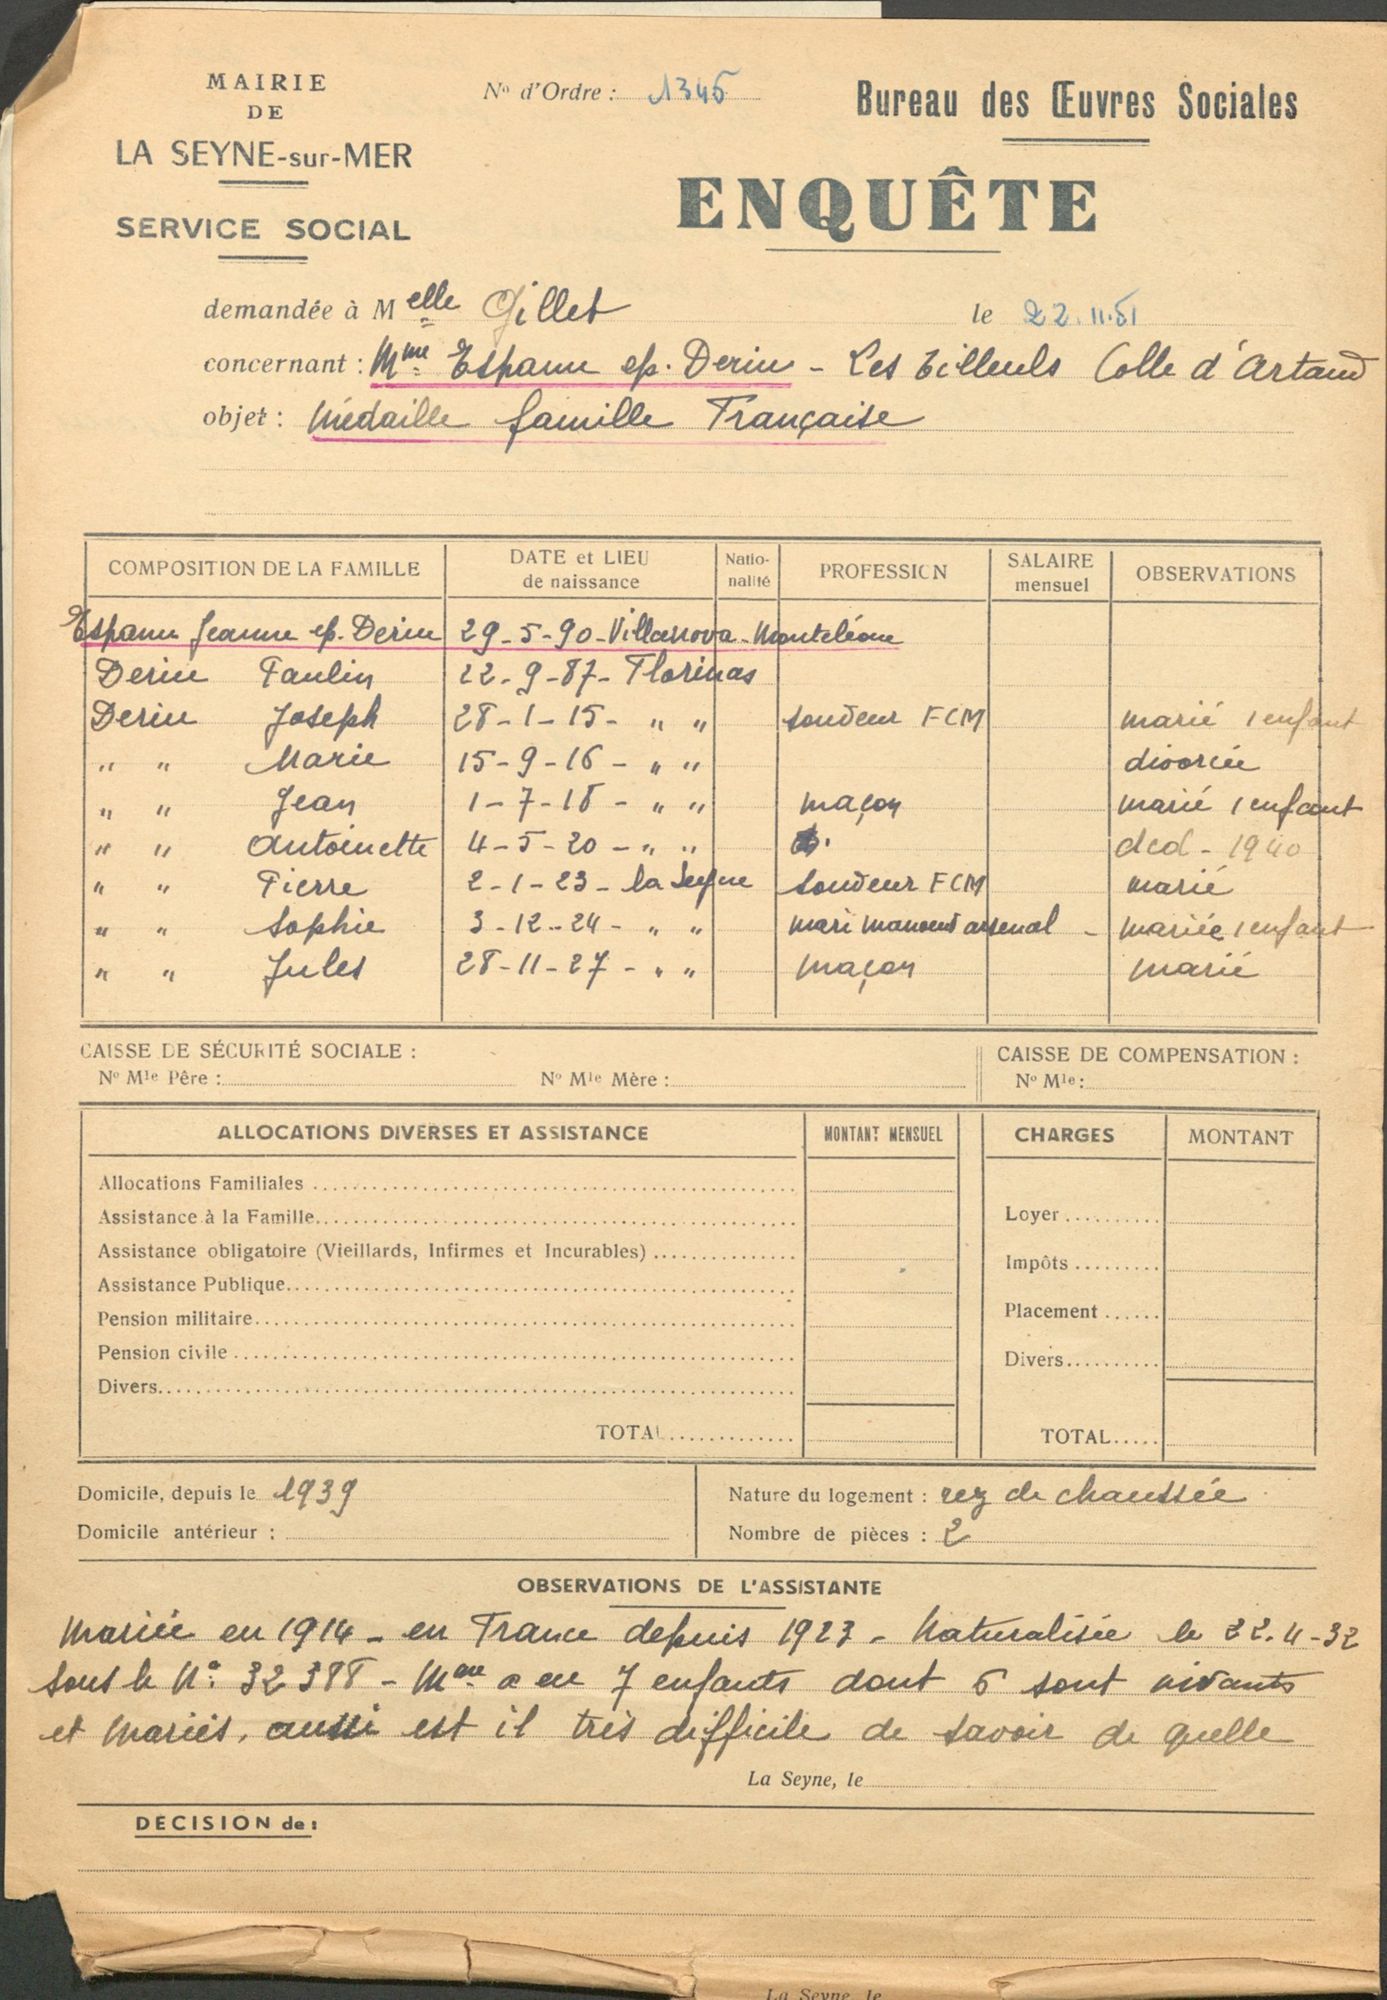 MAIRIE
DE
LA SEYNE-sur-MER
SERVICE SOCIAL
No d'Ordre : 1345
Bureau des Œuvres Sociales
ENQUÊTE
demandée à Melle Gillet le 22.11.51
concernant : Mme Espanu ep. Deriu - Les Tilleuls Colle d'Artaud
objet : Médaille famille Française
COMPOSITION DE LA FAMILLE DATE et LIEU de naissance Natio-nalité PROFESSION SALAIRE mensuel OBSERVATIONS
Espanu Jeanne ep. Deriu 29-5-90-Villanova-Monteléone
Deriu Paulin 22-9-87-Florinas
Deriu Joseph 28-1-15- " " soudeur FCM marié 1 enfant
" " Marie 15-9-16- " " divorcée
" " Jean 1-7-18- " " maçon marié 1 enfant
" " Antoinette 4-5-20- " " dcd-1940
" " Pierre 2-1-23-la Seyne soudeur FCM marié
" " Sophie 3-12-24- " " mari manoeuv arsenal - mariée 1 enfant
" " Jules 28-11-27- " " maçon marié
CAISSE DE SÉCURITÉ SOCIALE : CAISSE DE COMPENSATION :
No Mle Père : No Mle Mère : No Mle :
ALLOCATIONS DIVERSES ET ASSISTANCE MONTANT MENSUEL CHARGES MONTANT
Allocations Familiales
Assistance à la Famille
Assistance obligatoire (Vieillards, Infirmes et Incurables)
Assistance Publique
Pension militaire
Pension civile
Divers
TOTAL
Loyer
Impôts
Placement
Divers
TOTAL
Domicile, depuis le 1939
Domicile antérieur :
Nature du logement : rez de chaussée
Nombre de pièces : 2
OBSERVATIONS DE L'ASSISTANTE
Mariée en 1914 - en France depuis 1923 - Naturalisée le 22-4-32
sous le No 32388 - Mme a eu 7 enfants dont 6 sont vivants
et mariés, aussi est il très difficile de savoir de quelle
La Seyne, le
DÉCISION de :
La Seyne, le